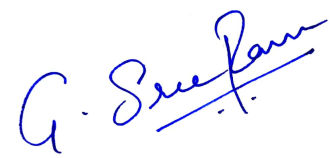 G. Sree Ram